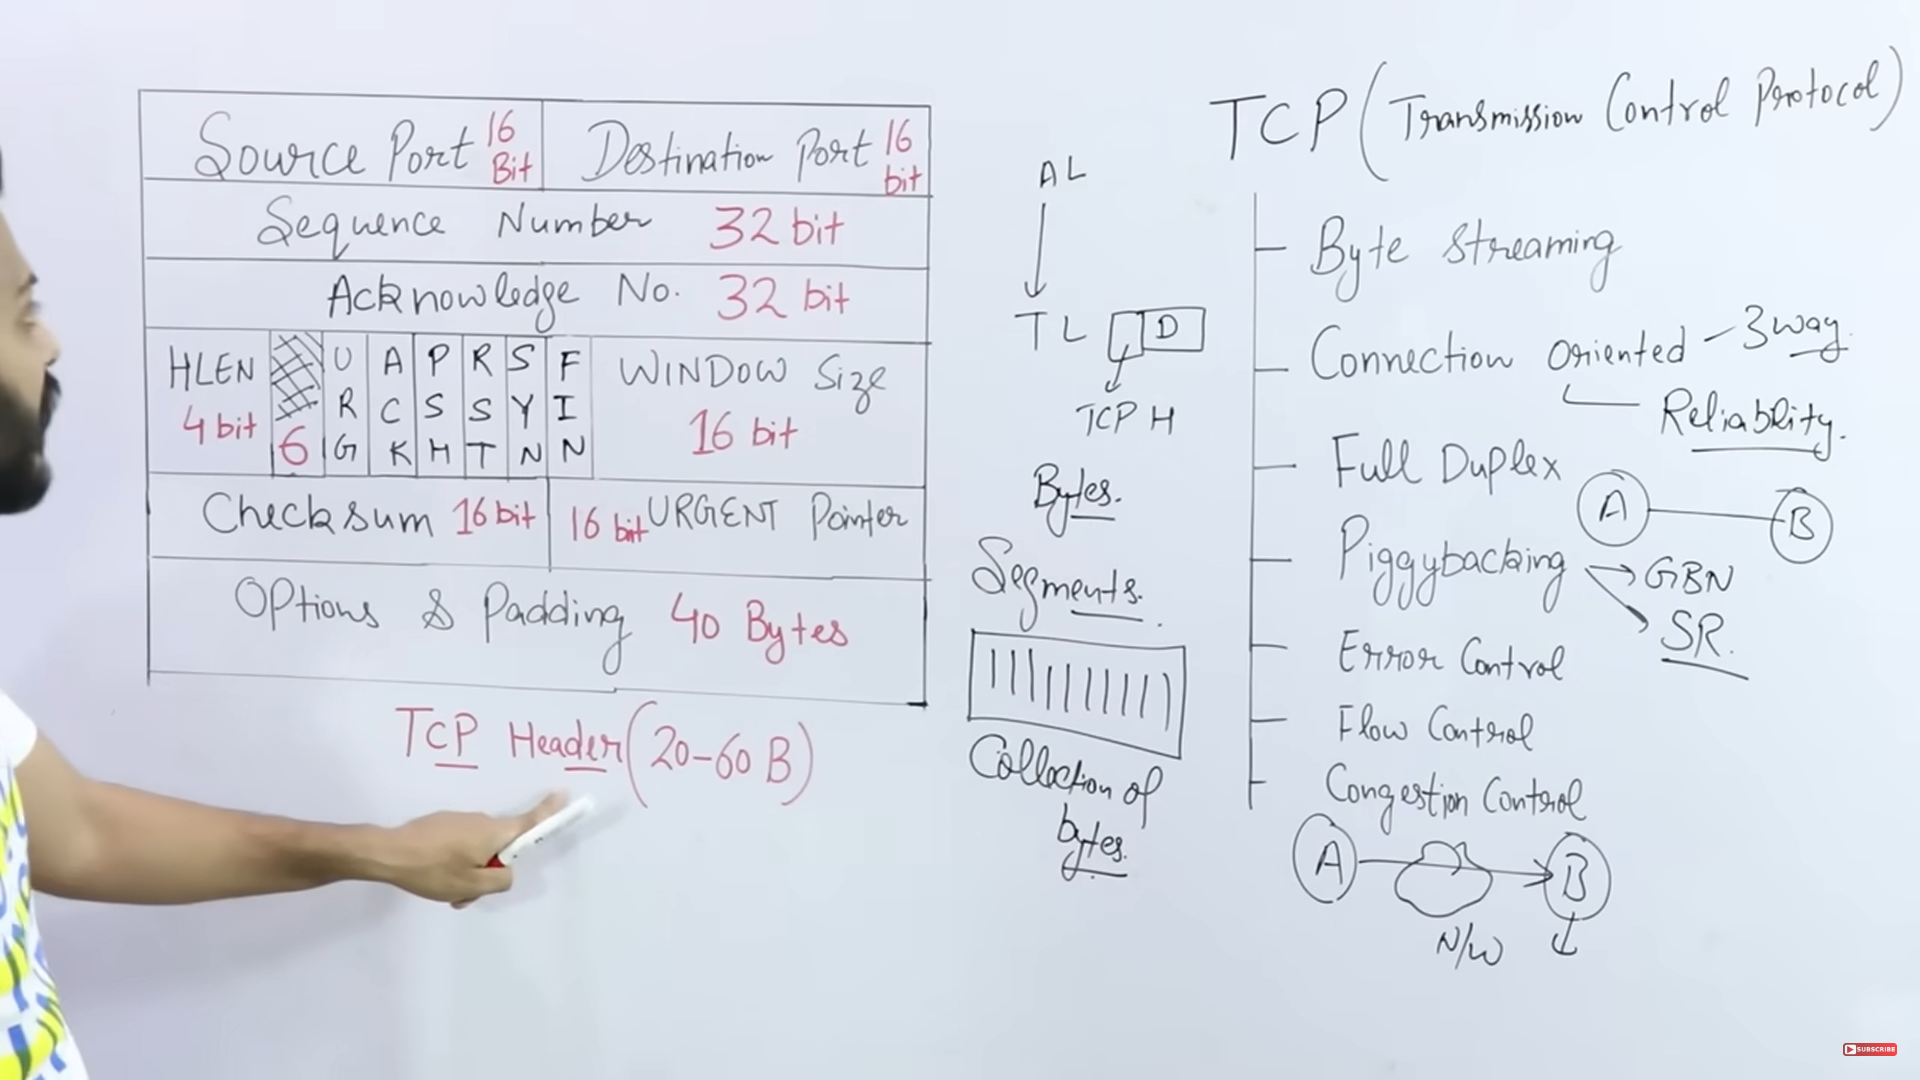 TCP (Transmission Control Protocol)
Source Port 16 Bit
Destination Port 16 bit
Sequence Number 32 bit
Acknowledge No. 32 bit
HLEN 4 bit
6
URG
ACK
PSH
RST
SYN
FIN
WINDOW Size 16 bit
Checksum 16 bit
16 bit URGENT Pointer
Options & Padding 40 Bytes
TCP Header (20-60 B)
AL
TL
D
TCP H
Bytes.
Segments.
Collection of
bytes.
Byte Streaming
Connection Oriented - 3way.
Reliability.
Full Duplex
A
B
Piggybacking
GBN
SR.
Error Control
Flow Control
Congestion Control
A
B
N/W
SUBSCRIBE